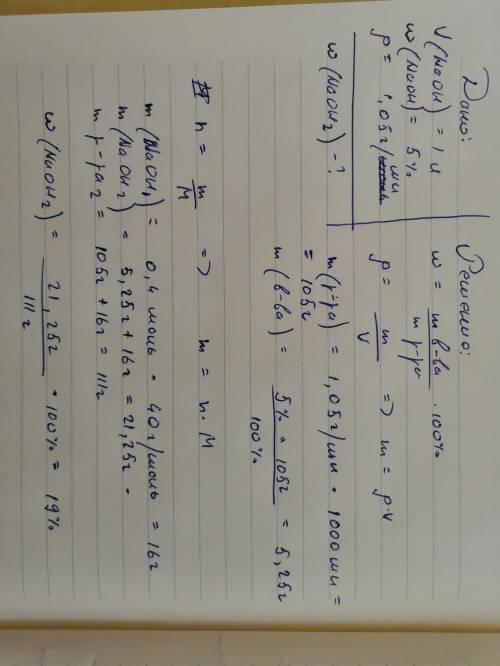 Дано:
V(NaOH) = 1 л
w(NaOH) = 5%
ρ = 1,05г/мл
w(NaOH₂) - ?
Решение:
w = m в-ва / m р-ра · 100%
ρ = m / V => m = ρ·V
m(р-ра) = 1,05г/мл · 1000мл =
= 105г
m(в-ва) = 5% · 105г / 100% = 5,25г
n = m / M => m = n·M
m(NaOH₁) = 0,4 моль · 40г/моль = 16г
m(NaOH₂) = 5,25г + 16г = 21,25г
m р-ра₂ = 105г + 16г = 111г
w(NaOH₂) = 21,25г / 111г · 100% = 19%